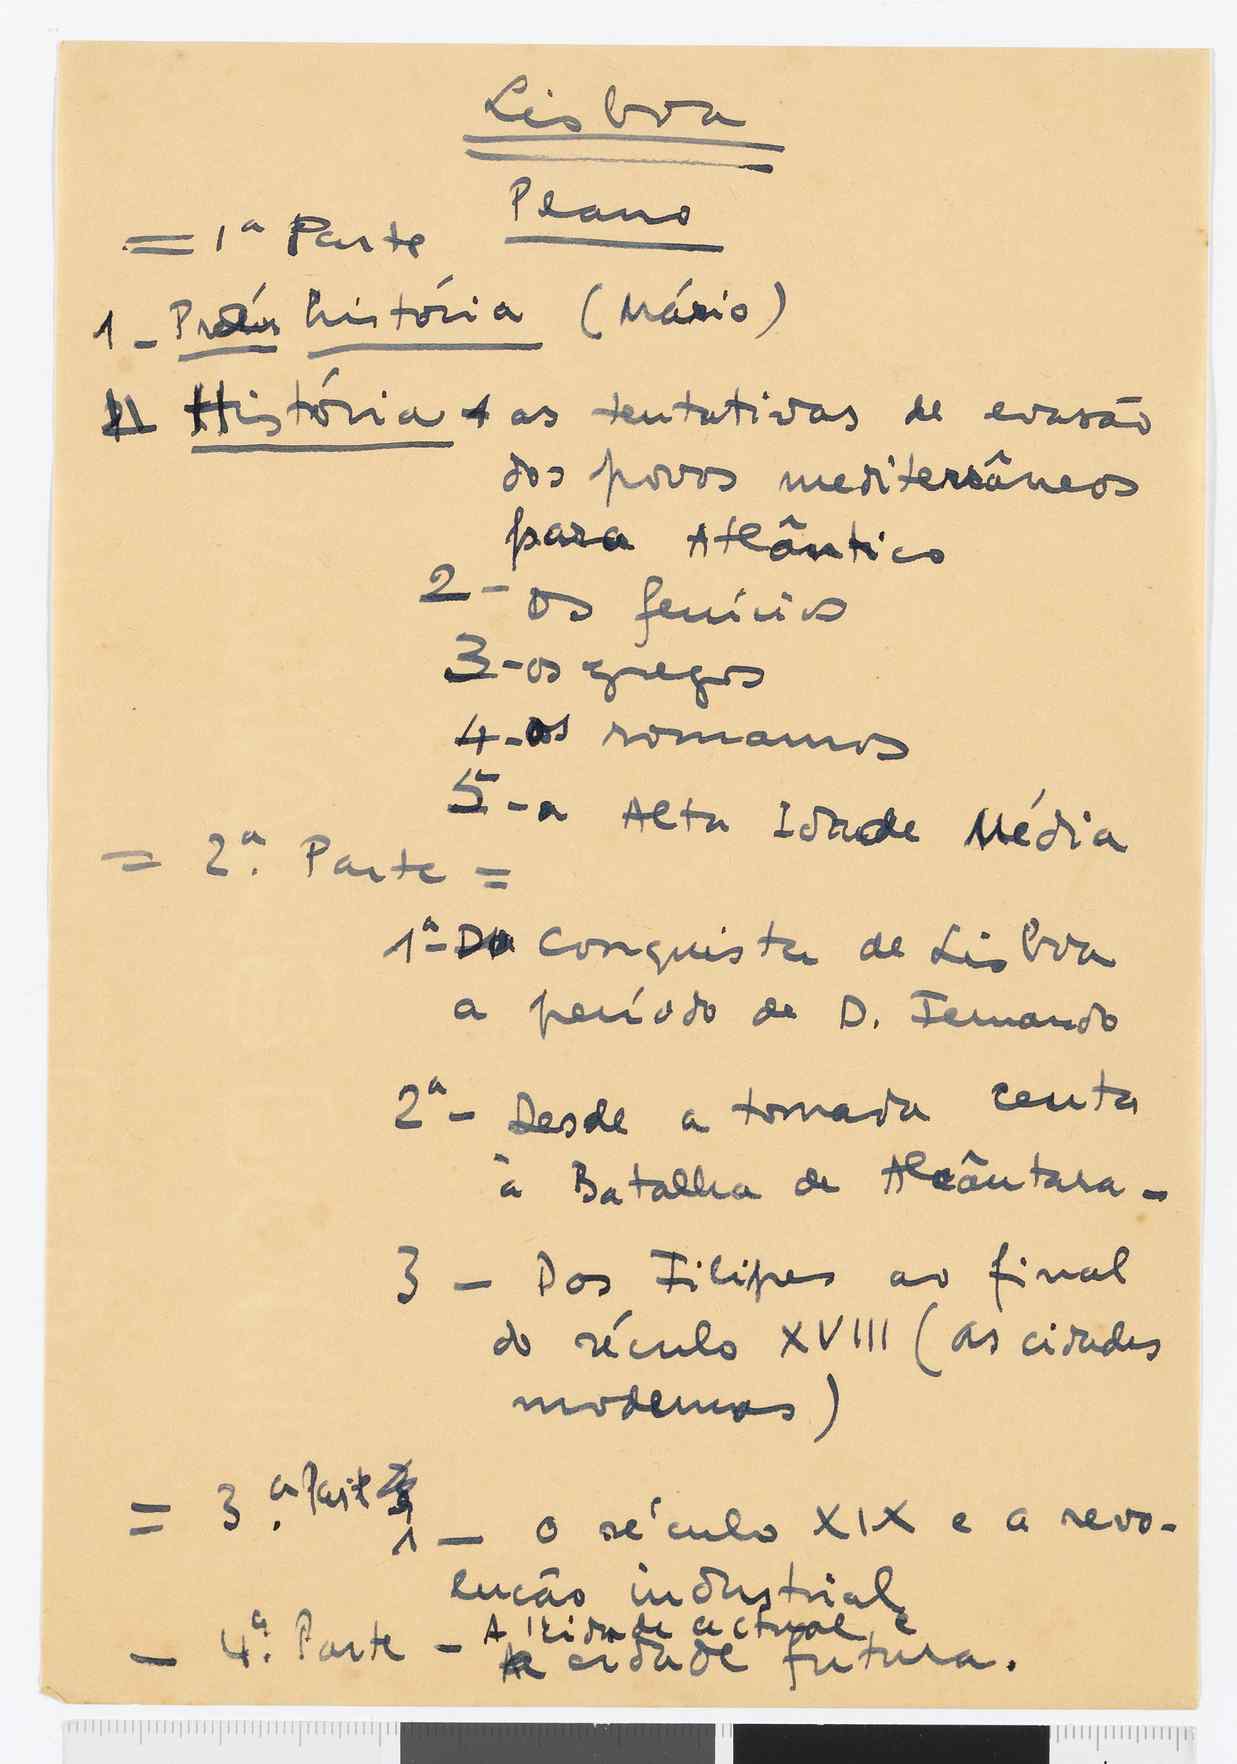 Lisboa
Plano
= 1ª Parte
1 - Pré história (Mário)
II História 1 as tentativas de evasão
dos povos mediterrâneos
para Atlântico
2 - os fenícios
3 - os gregos
4 - os romanos
5 - a Alta Idade Média
= 2ª. Parte =
1ª - Da Conquista de Lisboa
a período de D. Fernando
2ª - Desde a tomada Ceuta
à Batalha de Alcântara -
3 - Dos Filipes ao final
do século XVIII (as cidades
modernas)
= 3.ª Parte
1 - O século XIX e a revo-
lução industrial
- 4ª. Parte - A cidade actual e
a cidade futura.